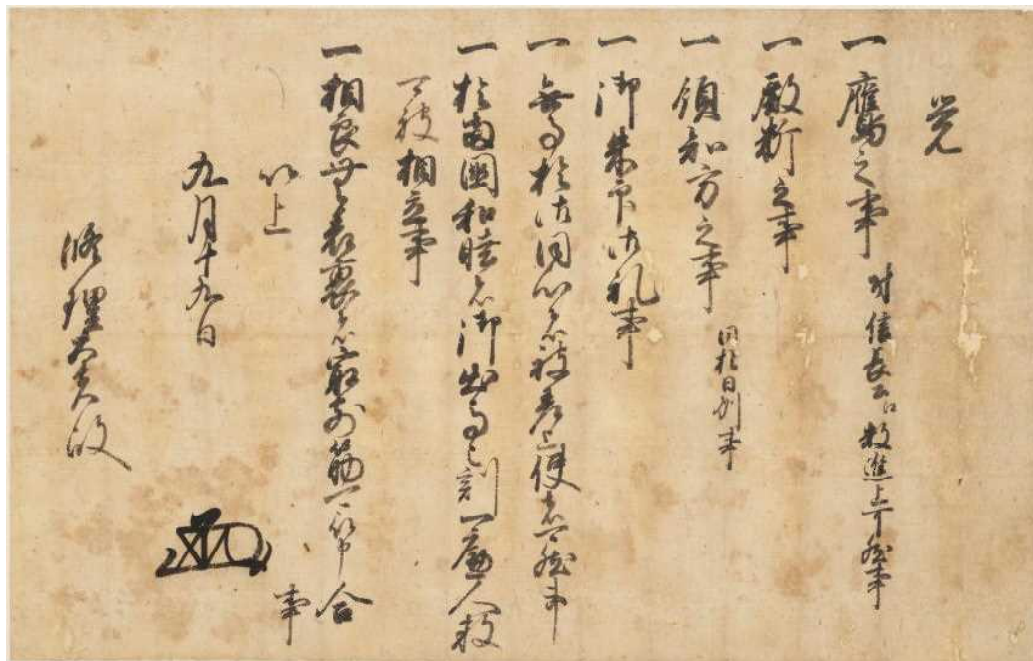 覚
一 鷹之事 付信長公江被進上可然事
一 殿料之事
一 領知方之事 同於日州事
一 御朱印御礼事
一 無事於御同心者被差上使者可然事
一 於両国和睦者御出馬之刻一廉人
可被相立事
一 相良
事
以上
九月十九日
修理大夫殿